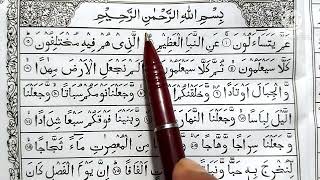 بِسْمِ اللهِ الرَّحْمٰنِ الرَّحِيْمِ
عَمَّ يَتَسَآءَلُوْنَ ۝١ عَنِ النَّبَاِ الْعَظِيْمِ ۝٢ الَّذِىْ هُمْ فِيْهِ مُخْتَلِفُوْنَ ۝٣
كَلَّا سَيَعْلَمُوْنَ ۝٤ ثُمَّ كَلَّا سَيَعْلَمُوْنَ ۝٥ نَجْعَلِ الْاَرْضَ مِهٰدًا ۝٦
وَّالْجِبَالَ اَوْتَادًا ۝٧ وَّخَلَقْنٰكُمْ نَوْمَكُمْ سُبَاتًا ۝٩ وَّجَعَلْنَا
الَّيْلَ لِبَاسًا ۝١٠ وَّجَعَلْنَا النَّهَارَ وَّبَنَيْنَا فَوْقَكُمْ سَبْعًا شِدَادًا ۝١٢
وَّجَعَلْنَا سِرَاجًا وَّهَّاجًا ۝١٣ مِنَ الْمُعْصِرٰتِ مَآءً ثَجَّاجًا ۝١٤
لِّنُخْرِجَ بِهٖ حَبًّا وَّنَبَاتًا ۝١٥ اَلْفَافًا ۝١٦ اِنَّ يَوْمَ الْفَصْلِ كَانَ